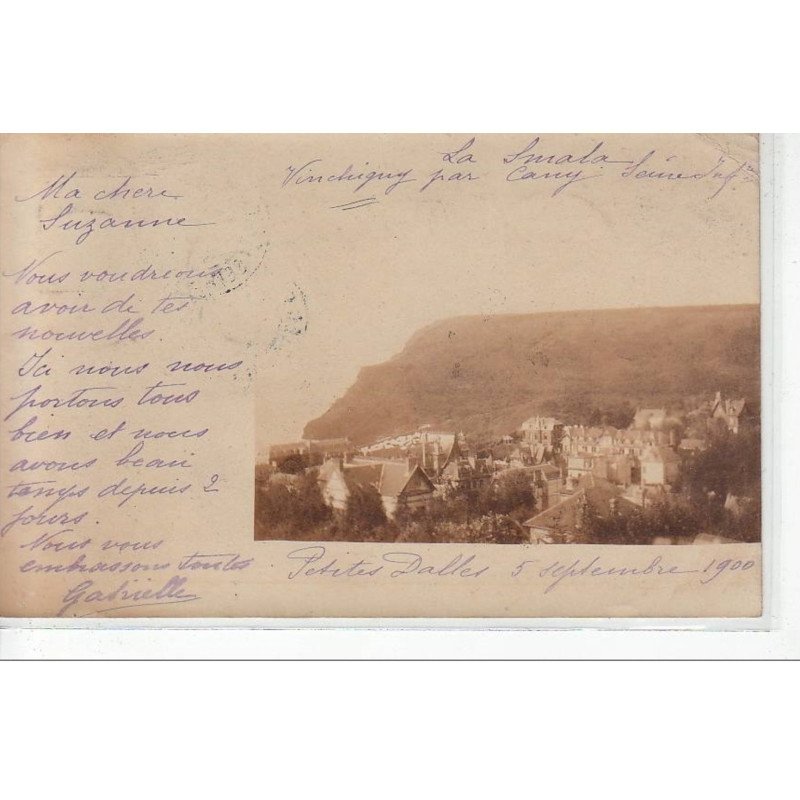 La Smala
Vinchigny par Cany Seine Infre
Ma chère
Suzanne
Nous voudreons
avoir de tes
nouvelles.
Ici nous nous
portons tous
bien et nous
avons beau
temps depuis 2
jours.
Nous vous
embrassons toutes
Gabrielle
Petites Dalles 5 septembre 1900